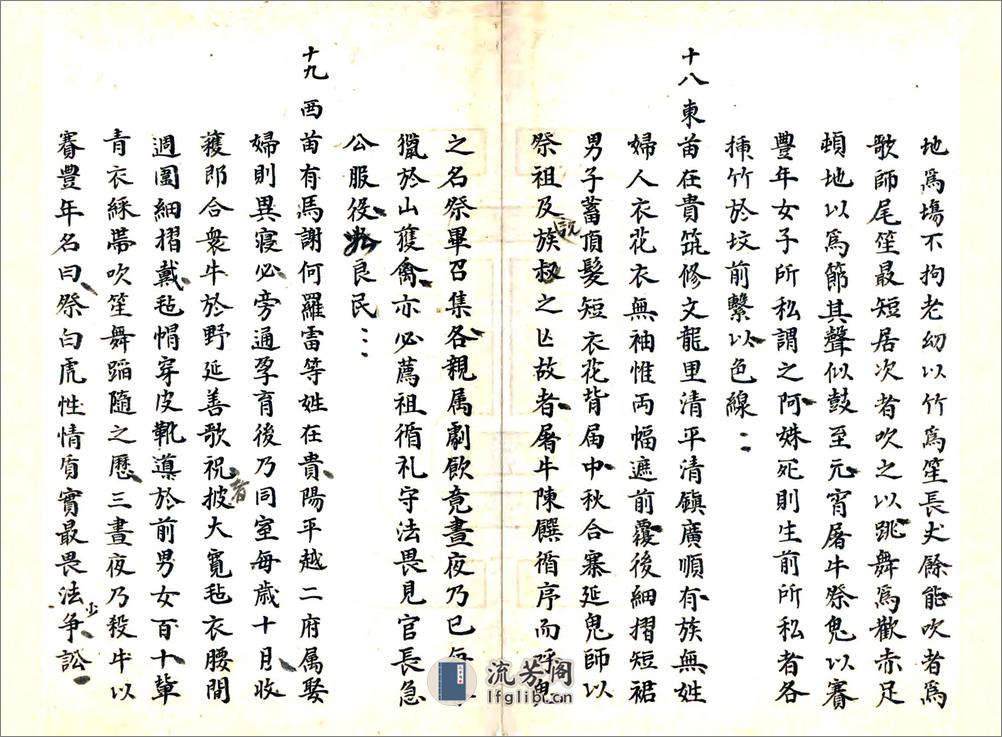 地爲塲不拘老幼以竹爲笙長丈餘能吹者爲
歌師尾笙最短居次者吹之以跳舞爲歡赤足
頓地以爲節其聲似鼓至元宵屠牛祭鬼以賽
豐年女子所私謂之阿姝死則生前所私者各
揷竹於坟前繫以色線
十八 東苗在貴筑修文龍里清平清鎮廣順有族無姓
婦人衣花衣無袖惟両幅遮前覆後細摺短裙
男子蓄頂髮短衣花背届中秋合寨延鬼師以
祭祖及族之亡故者屠牛陳饌循序而呼鬼
之名祭畢召集各親属劇飲竟晝夜乃已每
獵於山獲禽亦必薦祖循礼守法畏見官長急
公服役良民
十九 西苗有馬謝何羅雷等姓在貴陽平越二府属娶
婦則異寢必旁通孕育後乃同室每歳十月收
穫郎合衆牛於野延善歌祝者披大寬毡衣腰間
週圍細摺戴毡帽穿皮靴導於前男女百十軰
青衣綵帶吹笙舞蹈隨之歷三晝夜乃殺牛以
賽豐年名曰祭白虎性情質實最畏法少争訟
流芳阁
lfglib.cn